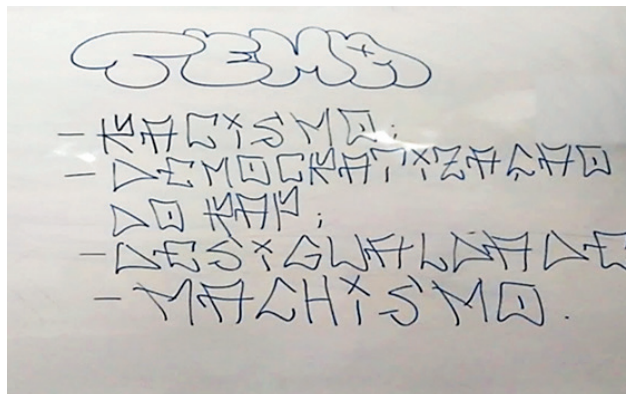 TEMA
- RACISMO;
- DEMOCRATIZAÇAO
DO RAP;
- DESIGUALDADE
- MACHISMO.